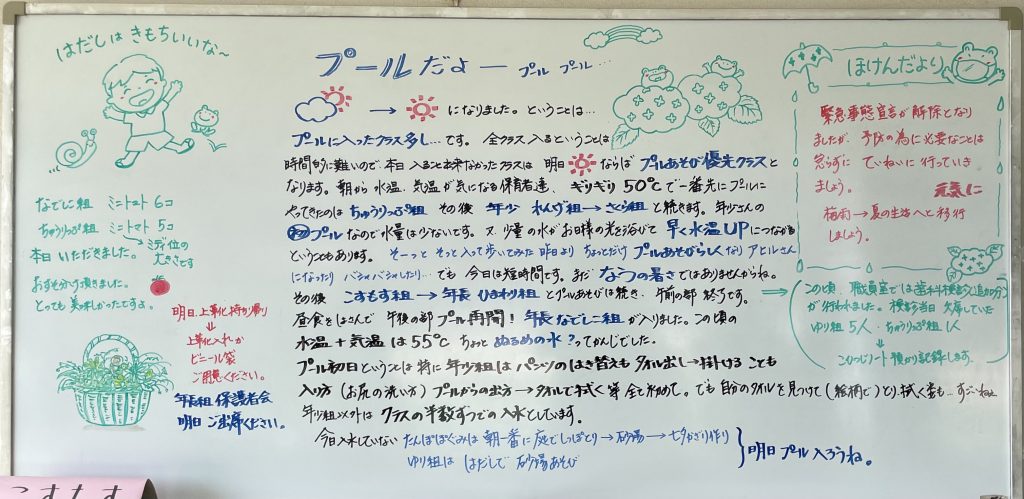 はだしは きもちいいな〜
なでしこ組 ミニトマト 6コ
ちゅうりっぷ組 ミニトマト 5コ
ミディ位の
大きさです
本日 いただきました。
おすそ分け頂きました。
とっても 美味しかったですよ。
明日 上草化 持ち帰り
↓
上草化入れか
ビニール袋
ご用意ください。
年長組 保護者会
明日 ご出席ください。
プールだよー プール プール…
→ になりました。ということは…
プールに入ったクラス多し…です。 全クラス 入るということは
時間的に難しいので 本日 入ること出来なかったクラスは 明日 ならば プールあそび優先クラスと
なります。朝から 水温、気温が気になる保育者達、ギリギリ 50℃で一番先にプールに
やってきたのは ちゅうりっぷ組 その後 年少 れんげ組→さくら組 と続きます。年少さんの
プールなので水量は少ないです。又、少量の水がお日様の光を浴びて 早く水温UPにつながる
ということもあります。そーっと そっと入って歩いてみた昨日より ちょっとだけ プールあそびらしくなり アヒルさん
になったり バシャバシャしたり… でも 今日は短時間です。まだ なつの暑さではありませんからね。
その後 こすもす組→年長 ひまわり組 とプールあそびは続き、午前の部 終了です。
昼食をはさんで 午後の部 プール再開! 年長なでしこ組が入りました。この頃の
水温+気温 は 55℃ ちょっと ぬるめの水?ってかんじでした。
プール初日ということは 特に 年少組は パンツのはき替えも タオル出し→掛ける ことも
入り方(お尻の洗い方)プールからの出方→タオルで拭く等 全て初めて。でも 自分のタオルを見つけて(絵柄で)とり、拭く姿も…すごーいねぇ
年少組以外は クラスの半数ずつでの入水としています。
今日入水していない たんぽぽぐみは 朝一番に庭でしっぽとり→砂場→七夕かざり作り
ゆり組は はだしで 砂場あそび
明日 プール 入ろうね。
ほけんだより
緊急事態宣言が解除となり
ましたが、予防の為に必要なことは
怠らずに ていねいに 行っていき
ましょう。
元気に
梅雨→夏の生活へと移行
しましょう。
この頃、職員室では歯科検診(追加分)
が行われました。検診当日 欠席していた
ゆり組 5人・ちゅうりっぷ組 1人
こひつじノート 預かり記録します。
こすもす